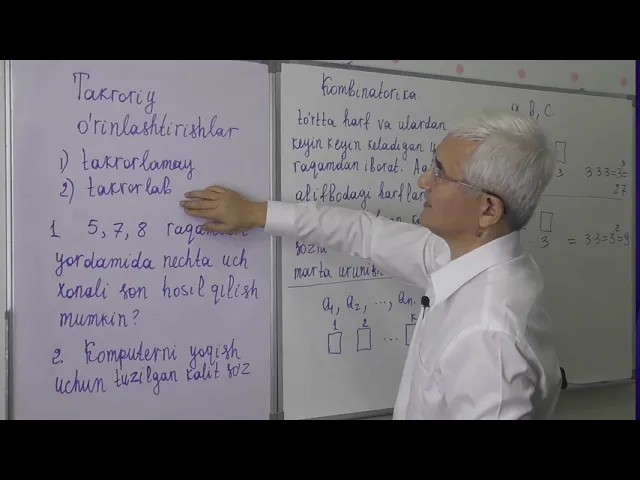 Takroriy
o'rinlashtirishlar
1) takrorlamay
2) takrorlab
1 5, 7, 8
yordamida nechta uch
xonali son hosil qilish
mumkin?
2. Komputerni yoqish
uchun tuzilgan kalit so'z
Kombinatorika
to'rtta harf va ulardan
keyin keyin keladigan
raqamdan iborat.
alifbodagi harflar
marta urinish
a₁, a₂, ..., aₙ.
1 2 ... k
B, C.
3·3·3=3³=
27
3 = 3·3=3²=9